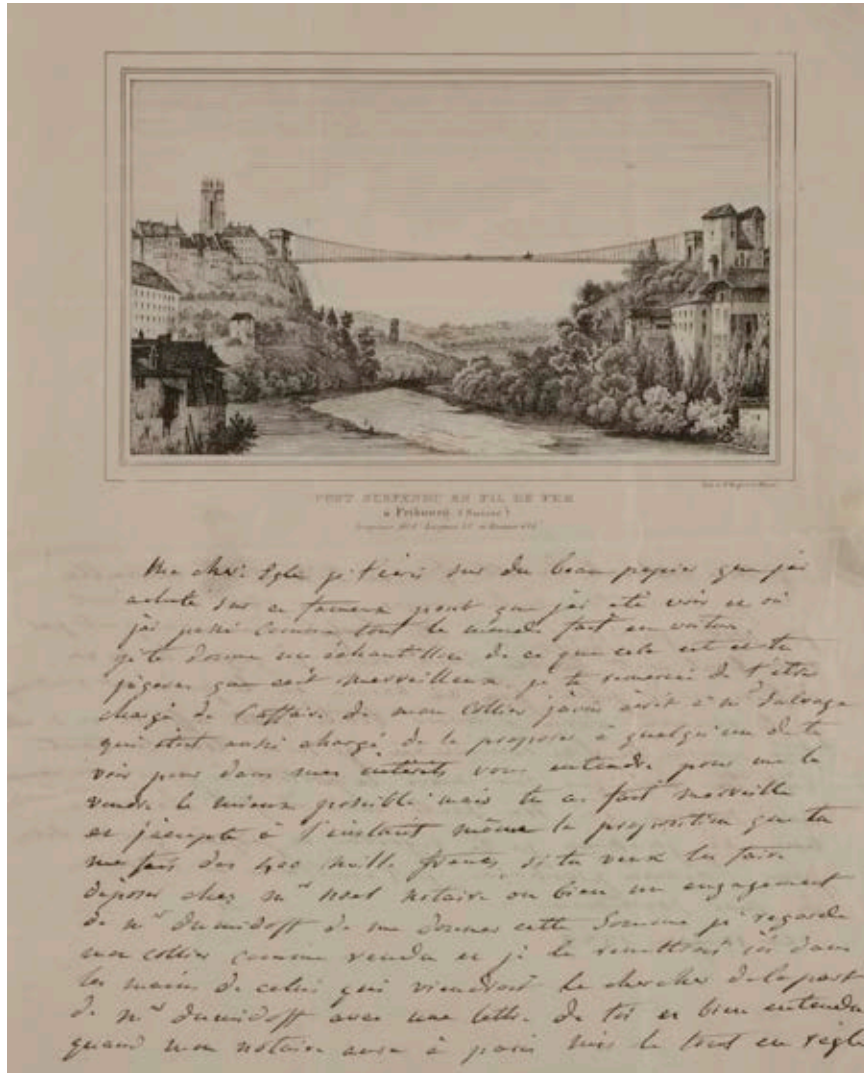 PONT SUSPENDU EN FIL DE FER
à Fribourg (Suisse)
Ma chère Egle je t'écris sur du beau papier que j'ai
acheté sur ce fameux pont que j'ai été voir et où
j'ai passé comme tout le monde fait en voiture
je te donne un échantillon de ce que cela est et tu
jugeras que c'est merveilleux je te remercie de t'être
chargé de l'affaire de mon collier j'avais écrit à mr
qui était aussi chargé de le proposer à quelqu'un de te
voir pour dans mes intérêts vous entendre pour me le
vendre le mieux possible mais tu as fait merveille
et j'accepte à l'instant même la proposition que tu
me fais des 400 mille francs si tu veux les faire
déposer chez mr notaire ou bien un engagement
de mr dumidoff de me donner cette somme je regarde
mon collier comme vendu et je le remettrai ici dans
les mains de celui qui viendrait le chercher de la part
de mr dumidoff avec une lettre de toi et bien entendu
quand mon notaire aura à paris mis le tout en règle